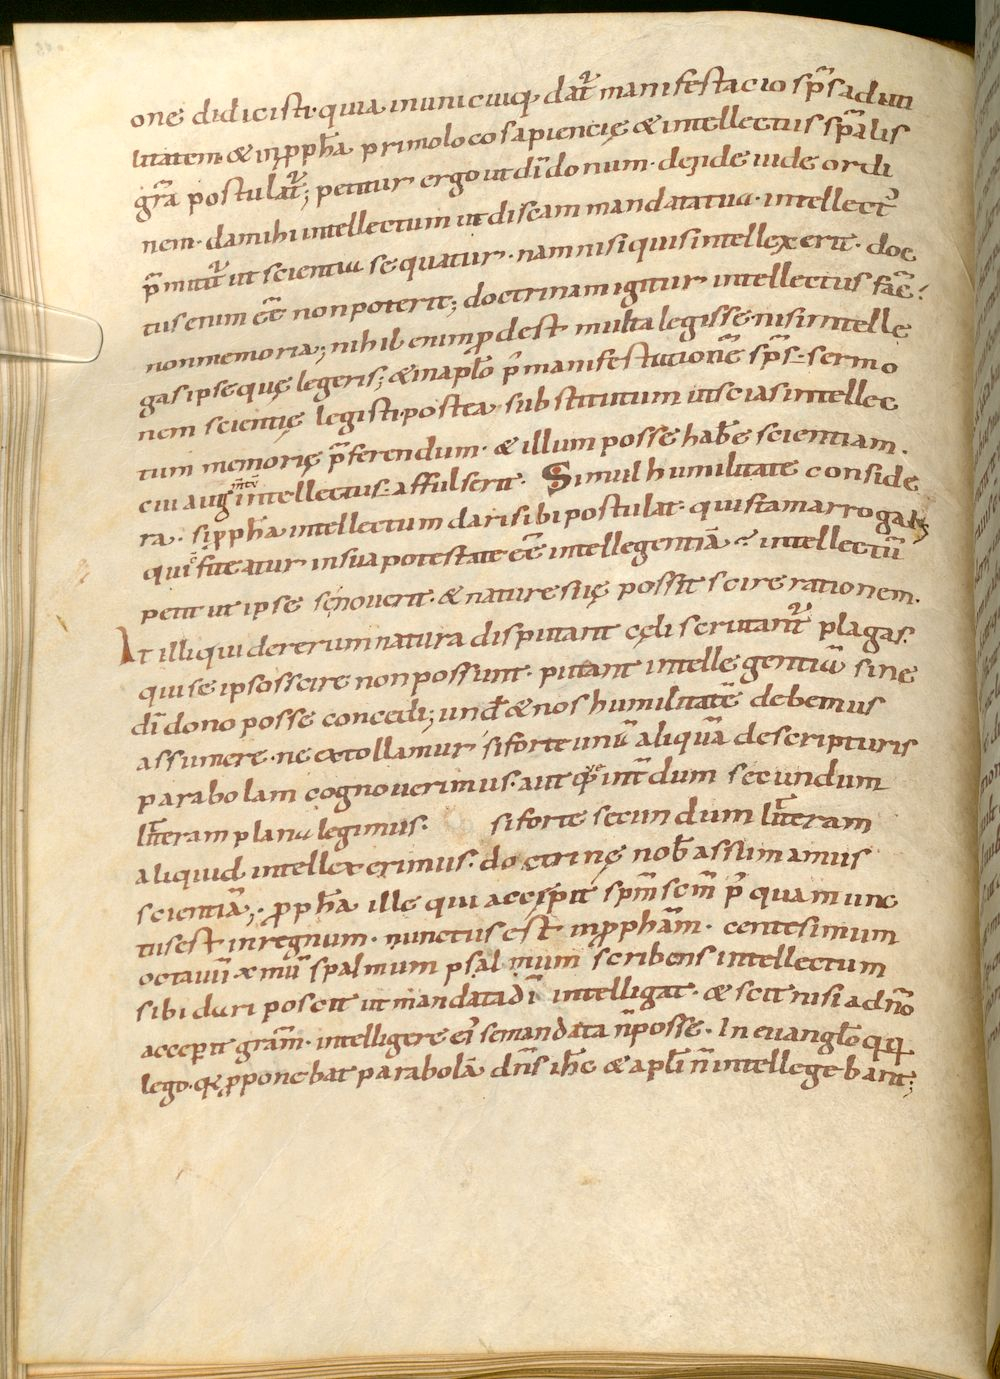 one didicisti· quia inunicuiq; dat᷑ manifestacio sp̅s aduti
litatem· & inp̱pha̅ primo loco sapiencię & intellectus sp̅alis
gr̅a postulat᷑; petitur ergo ut di̅ donum· deinde uide ordi
nem· damihi intellectum ut discam mandata tua· intellect᷑
p̅mitit᷑ ut scientia sequatur· nam nisi quis intellexerit· doc
tus enim ee̅ non poterit; doctrinam igitur intellectus fac̅·
non memoria; nihil enim p̱dest multa legisse· nisi intelle
gas ipse quę legeris; & in aplo̅ p̅ manifestatione̅ sp̅s· sermo
nem scientię legisti postea substitutum ut scias intellec
tum memorię p̅ferendum· & illum posse habe̅ scientiam·
cui aug mtu̅ intellectus affulserit· Simul humilitate conside
ra· si p̱pha̅ intellectum dari sibi postulat· quis tam arrogans
qui fateatur in sua potestate ee̅ intellegentia̅? intellectu̅
petit ut ipse se nouerit· & nature suę possit scire rationem·
At illi qui de rerum natura disputant cęli scrutant᷑ plagas·
qui se ipsos scire non possunt· putant intellegentia̅ sine
di̅ dono posse concedi; und̅ & nos humilitate̅ debemus
assumere· ne extollamur si forte unu̅ aliqua̅ de scripturis
parabolam cognouerimus· aut qe̅ int̅dum secundum
lit̅teram plana legimus· si forte secundum lit̅teram
aliquid intellexerimus· doctrinę nob̅ assumamus
scientia̅; p̱pha̅ ille qui accepit sp̅m scm̅ p̅ quam unc
tus est in regnum· nunctus est in p̱pha̅m· centesimum
octauu̅ x mu̅ spalmum psalmum scribens intellectum
sibi dari poscit ut mandata di̅ intelligat· & scit nisi a dn̅o
acceperit gra̅m· intelligere ei̅ se mandata n̅ posse· In euanglo̅ qq;
lego· qa̅ p̱ponebat parabola̅ dn̅s ihc̅ & apli̅ n̅ intellegebant;